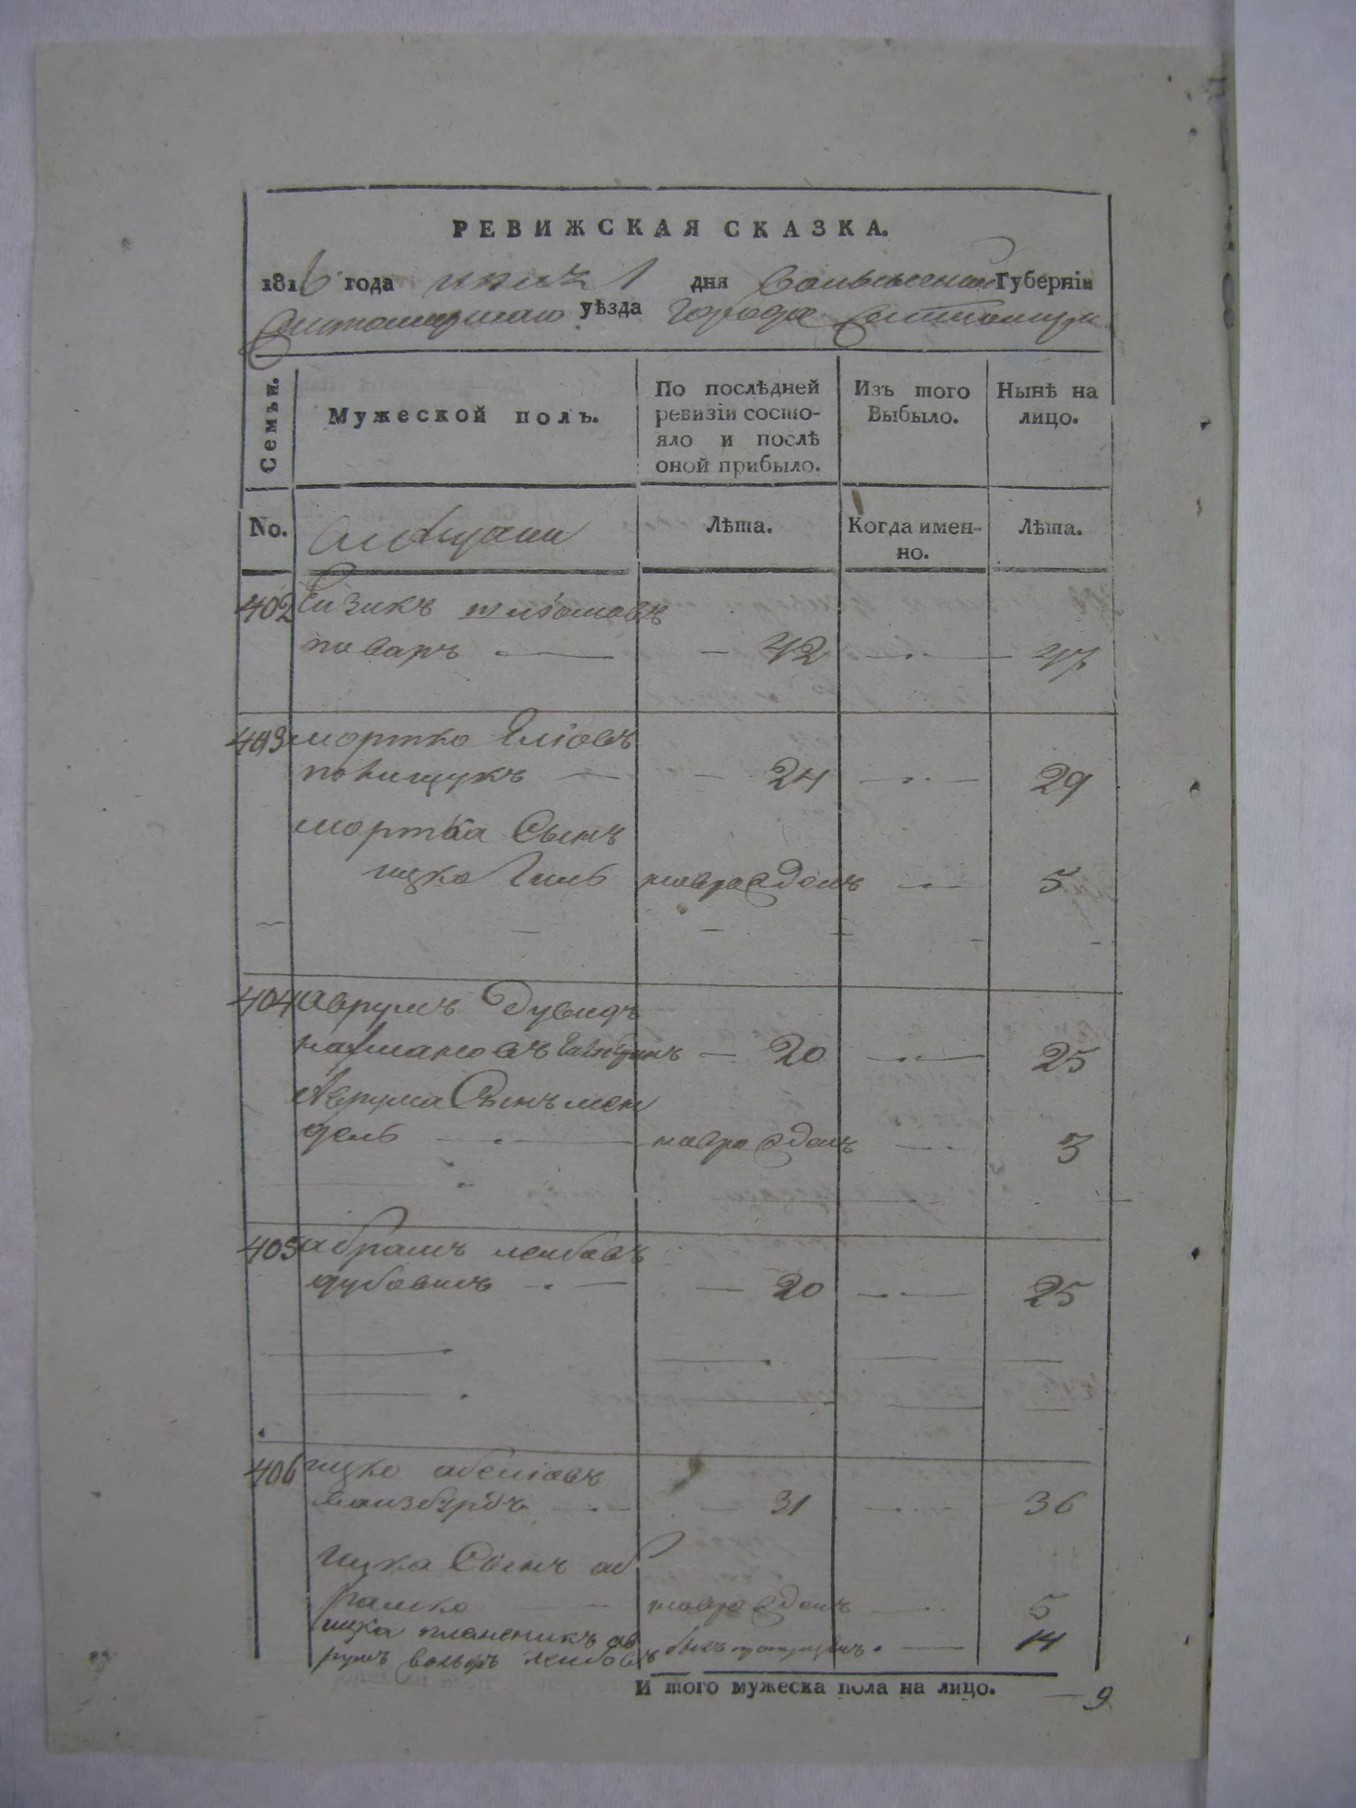 РЕВИЖСКАЯ СКАЗКА.
1816 года июля 1 дня Волынской Губерніи
Житомирскаго уѣзда города Житомира
Семьи. Мужеской полъ. По послѣдней ревизіи состояло и послѣ оной прибыло. Изъ того Выбыло. Нынѣ на лицо.
No. Лѣта. Когда именно. Лѣта.
402
поваръ — 42 — 47
403 мортко Еліовъ
полищукъ — 24 — 29
мортка Сынъ
ицко новорожденъ — 5
404 Аврумъ Дувидъ
нахмановъ — 20 — 25
Аврума Сынъ мен
дель — новорожденъ — 3
405 абрамъ лейбовъ
— 20 — 25
406 ицко
— 31 — 36
ицка Сынъ аб
рамко — новорожденъ — 5
ицка племеникъ ав
румъ вольфъ лейбовъ былъ пропущенъ. — 14
И того мужеска пола на лицо. — 9